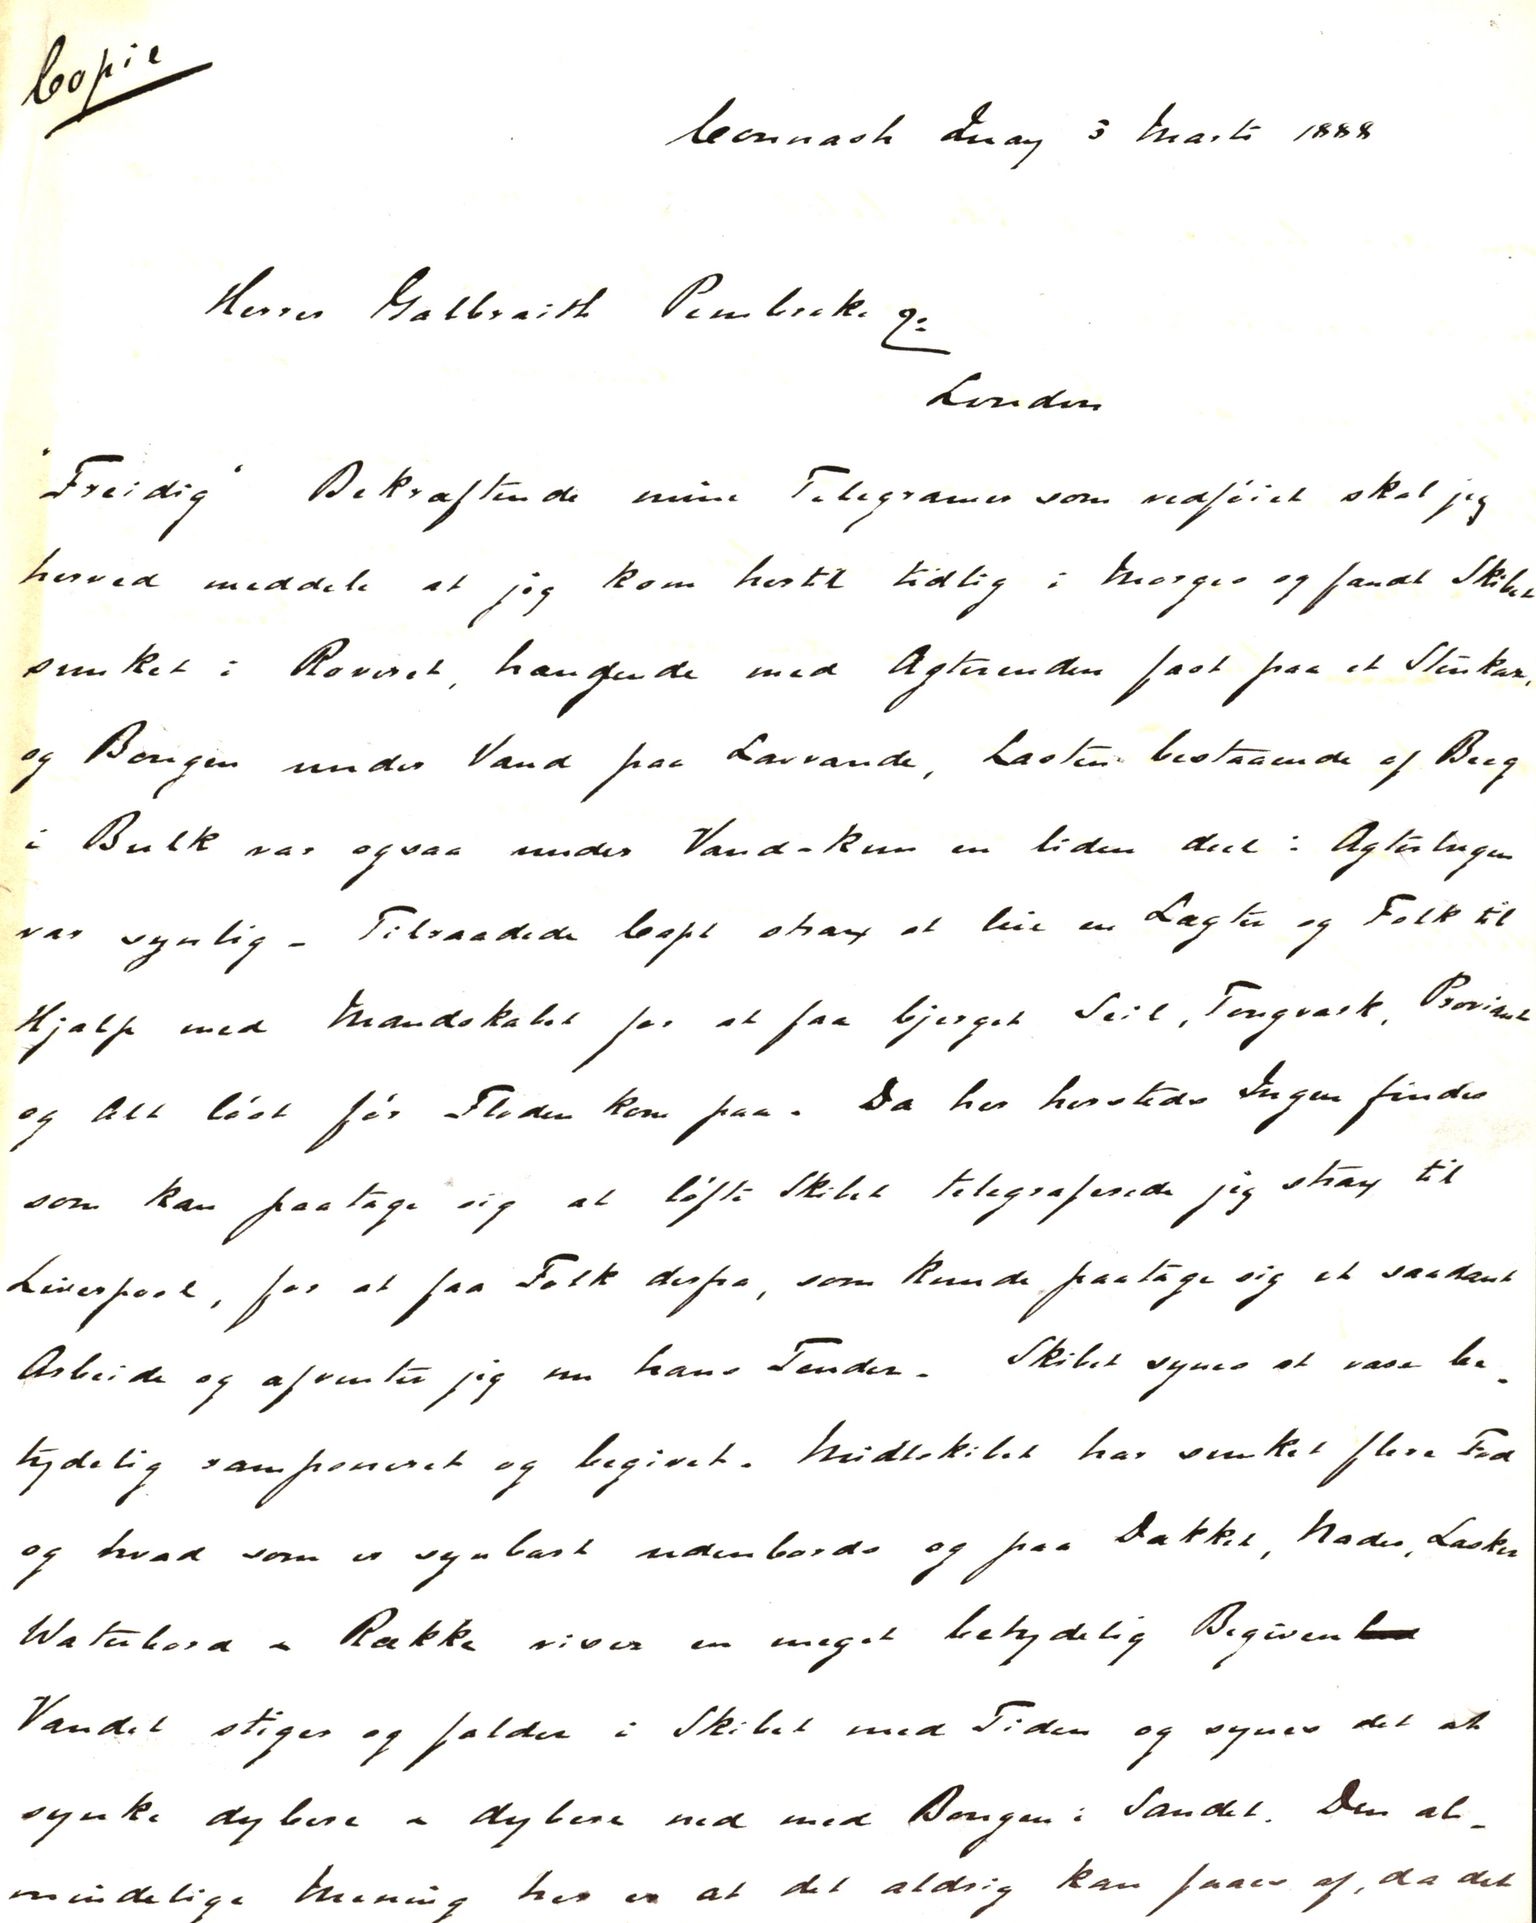 Copie
Connash Quay 3 Marts 1888
Herrer Galbraith Pembroke Co
London
"Freidig" Bekræftende mine Telegramer som vedføiet skal jeg
herved meddele at jeg kom hertil tidlig i Morges og fandt Skibet
sunket i Reveret, hængende med Agterenden fast paa et Stenkar,
og Bougen under Vand paa Lavvande, Lasten bestaaende af Beeg
i Bulk var ogsaa under Vand - kun en liden deel i Agterlugen
var synlig - Tilraadede Capt strax at leie en Lægter og Folk til
Hjælp med Mandskabet for at faa bjerget Seil, Tougværk, Proviant
og Alt løst før Floden kom paa. Da her hersteds Ingen findes
som kan paatage sig at løfte Skibet telegraferede jeg strax til
Liverpool, for at faa Folk derfra, som kunde paatage sig et saadant
Arbeide og afventer jeg nu hans Tender. Skibet synes at være be-
tydelig ramponeret og begivet. Midtskibet har sunket flere Fod
og hvad som er synbart udenbords og paa Dækket, Nader, Lasker
Waterbord & Række viser en meget betydelig Begiven
Vandet stiger og falder i Skibet med Tiden og synes det at
synke dybere & dybere ned med Bougen i Sandet. Den al-
mindelige Mening her er at det aldrig kan faaes af, da det